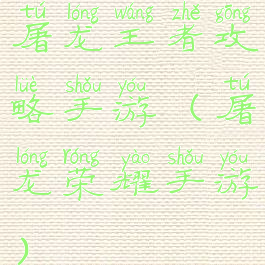 tú lóng wáng zhě gōng
屠龙王者攻
lüè shǒu yóu tú
略手游（屠
lóng róng yào shǒu yóu
龙荣耀手游
）